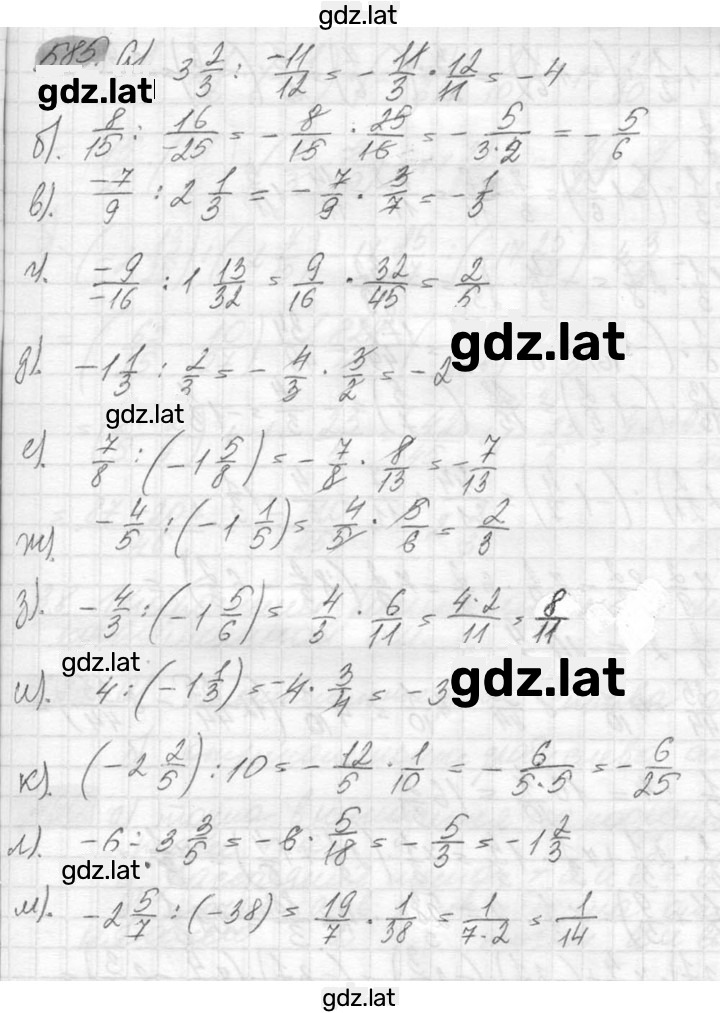 gdz.lat
585. а). 3 2/3 : -11/12 = - 11/3 · 12/11 = - 4
gdz.lat
б). 8/15 : 16/-25 = - 8/15 · 25/16 = - 5/3·2 = - 5/6
в). -7/9 : 2 1/3 = - 7/9 · 3/7 = - 1/3
г). -9/-16 : 1 13/32 = 9/16 · 32/45 = 2/5
gdz.lat
д). -1 1/3 : 2/3 = - 4/3 · 3/2 = - 2
gdz.lat
е). 7/8 : (-1 5/8) = - 7/8 · 8/13 = - 7/13
ж). - 4/5 : (-1 1/5) = 4/5 · 5/6 = 2/3
з). - 4/3 : (-1 5/6) = 4/3 · 6/11 = 4·2/11 = 8/11
gdz.lat
gdz.lat
и). 4 : (-1 1/3) = -4 · 3/4 = - 3
к). (-2 2/5) : 10 = - 12/5 · 1/10 = - 6/5·5 = - 6/25
л). -6 : 3 3/5 = - 6 · 5/18 = - 5/3 = - 1 2/3
gdz.lat
м). -2 5/7 : (-38) = 19/7 · 1/38 = 1/7·2 = 1/14
gdz.lat